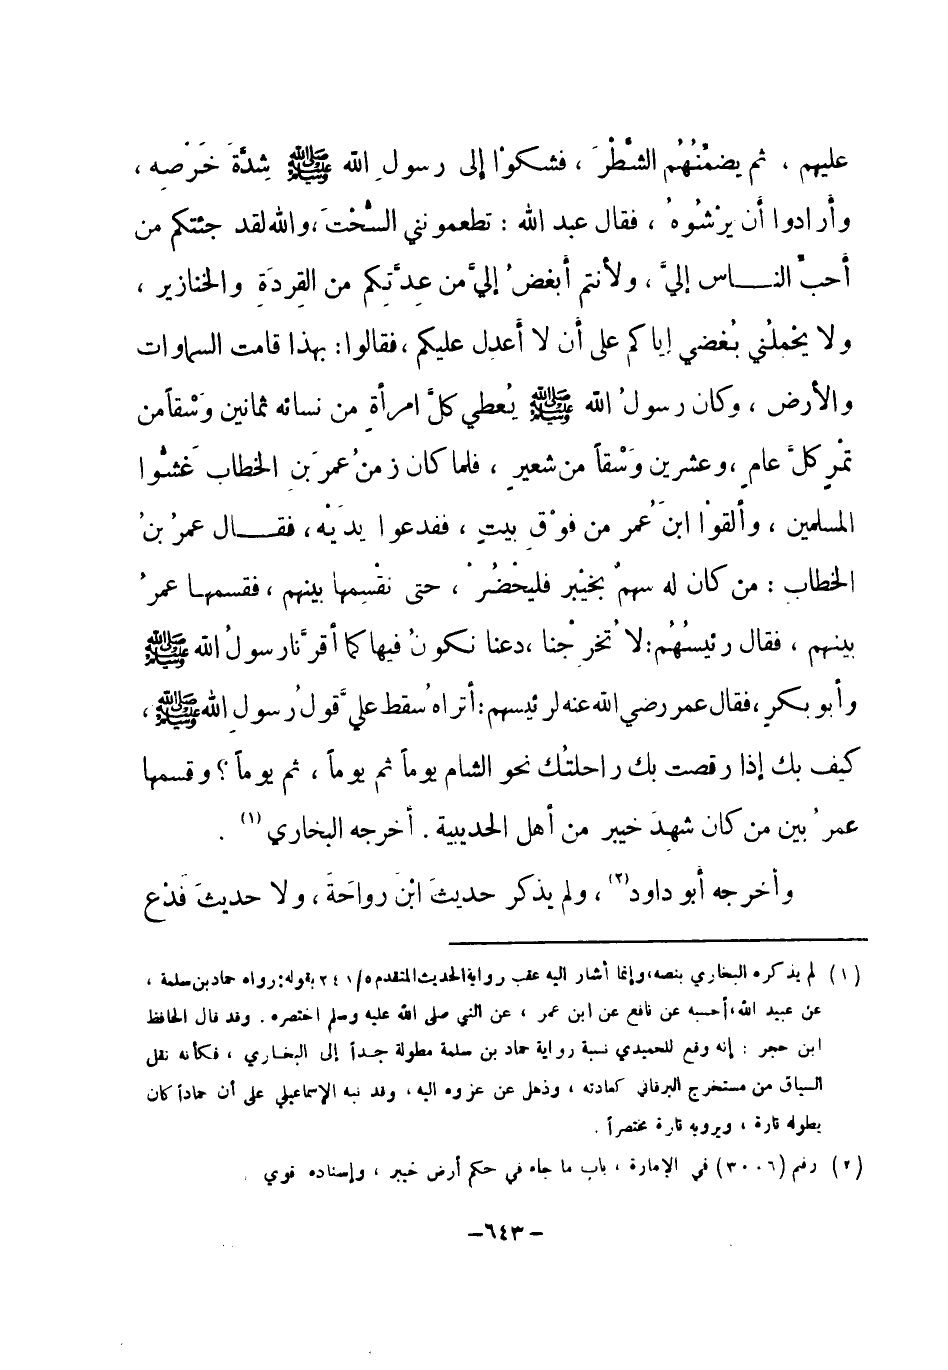 عليهم ، ثم يضمِّنُهُم الشَّطْرَ ، فشكَوْا إلى رسولِ الله ﷺ شِدَّةَ خَرْصِه ،
وأرادوا أن يرْشُوهُ ، فقال عبد الله : تطعمونني السُّحْتَ ،والله لقد جئتكم من
أحبِّ النـــاس إليَّ ، ولأنتم أبغضُ إليَّ من عِدَّتِكم من القِردَةِ والخنازير ،
ولا يحْملُني بُغضي إياكم على أن لا أعدِل عليكم ،فقالوا: بهذا قامت السماوات
والأرض ، وكان رسولُ الله ﷺ يُعطي كلَّ امرأةٍ من نسائه ثمانين وَسْقاً من
تمْرٍ كلَّ عامٍ ،وعشرين وَسْقاً من شعيرٍ ، فلما كان زمنُ عمرَ بنِ الخطاب غَشُّوا
المسلمين ، وألقوْا ابنَ عُمر من فوْقِ بيتٍ ، ففدعوا يديْه ، فقـــال عمرُ بنُ
الخطابِ : من كان له سهمٌ بخيْبر فليحْضُرْ ، حتى نقْسِمها بينهم ، فقسمهـا عمرُ
بينهم ، فقال رئيسُهُم:لا تُخرِجْنا ،دعنا نكونُ فيها كما أقرَّنا رسولُ الله ﷺ
وأبو بكرٍ ،فقال عمر رضي الله عنه لرئيسهم:أتراه سُقط عليَّ قولُ رسولِ الله ﷺ ،
كيف بك إذا رقصت بك راحلتُك نحو الشام يوماً ثم يوماً ، ثم يوماً ؟ وقسمها
عمرُ بين من كان شهِدَ خيبر من أهل الحديبية . أخرجه البخاري (١) .
وأخرجه أبو داود(٢) ، ولم يذكر حديثَ ابْنِ رواحَةَ ، ولا حديثَ فَدْعِ
(١) لم يذكره البخاري بنصه،وإنما أشار اليه عقب رواية الحديث المتقدم ٢٤١/٥ بقوله:رواه حماد بن سلمة ،
عن عبيد الله،أحسبه عن نافع عن ابن عمر ، عن النبي صلى الله عليه وسلم اختصره . وقد قال الحافظ
ابن حجر : إنه وقع للحميدي نسبة رواية حماد بن سلمة مطولة جـداً إلى البخـاري ، فكأنه نقل
السياق من مستخرج البرقاني كعادته ، وذهل عن عزوه اليه ، وقد نبه الإسماعيلي على أن حماداً كان
يطوله تارة ، ويرويه تارة مختصراً .
(٢) رقم (٣٠٠٦) في الإمارة ، باب ما جاء في حكم أرض خيبر ، وإسناده قوي .
–٦٤٣–